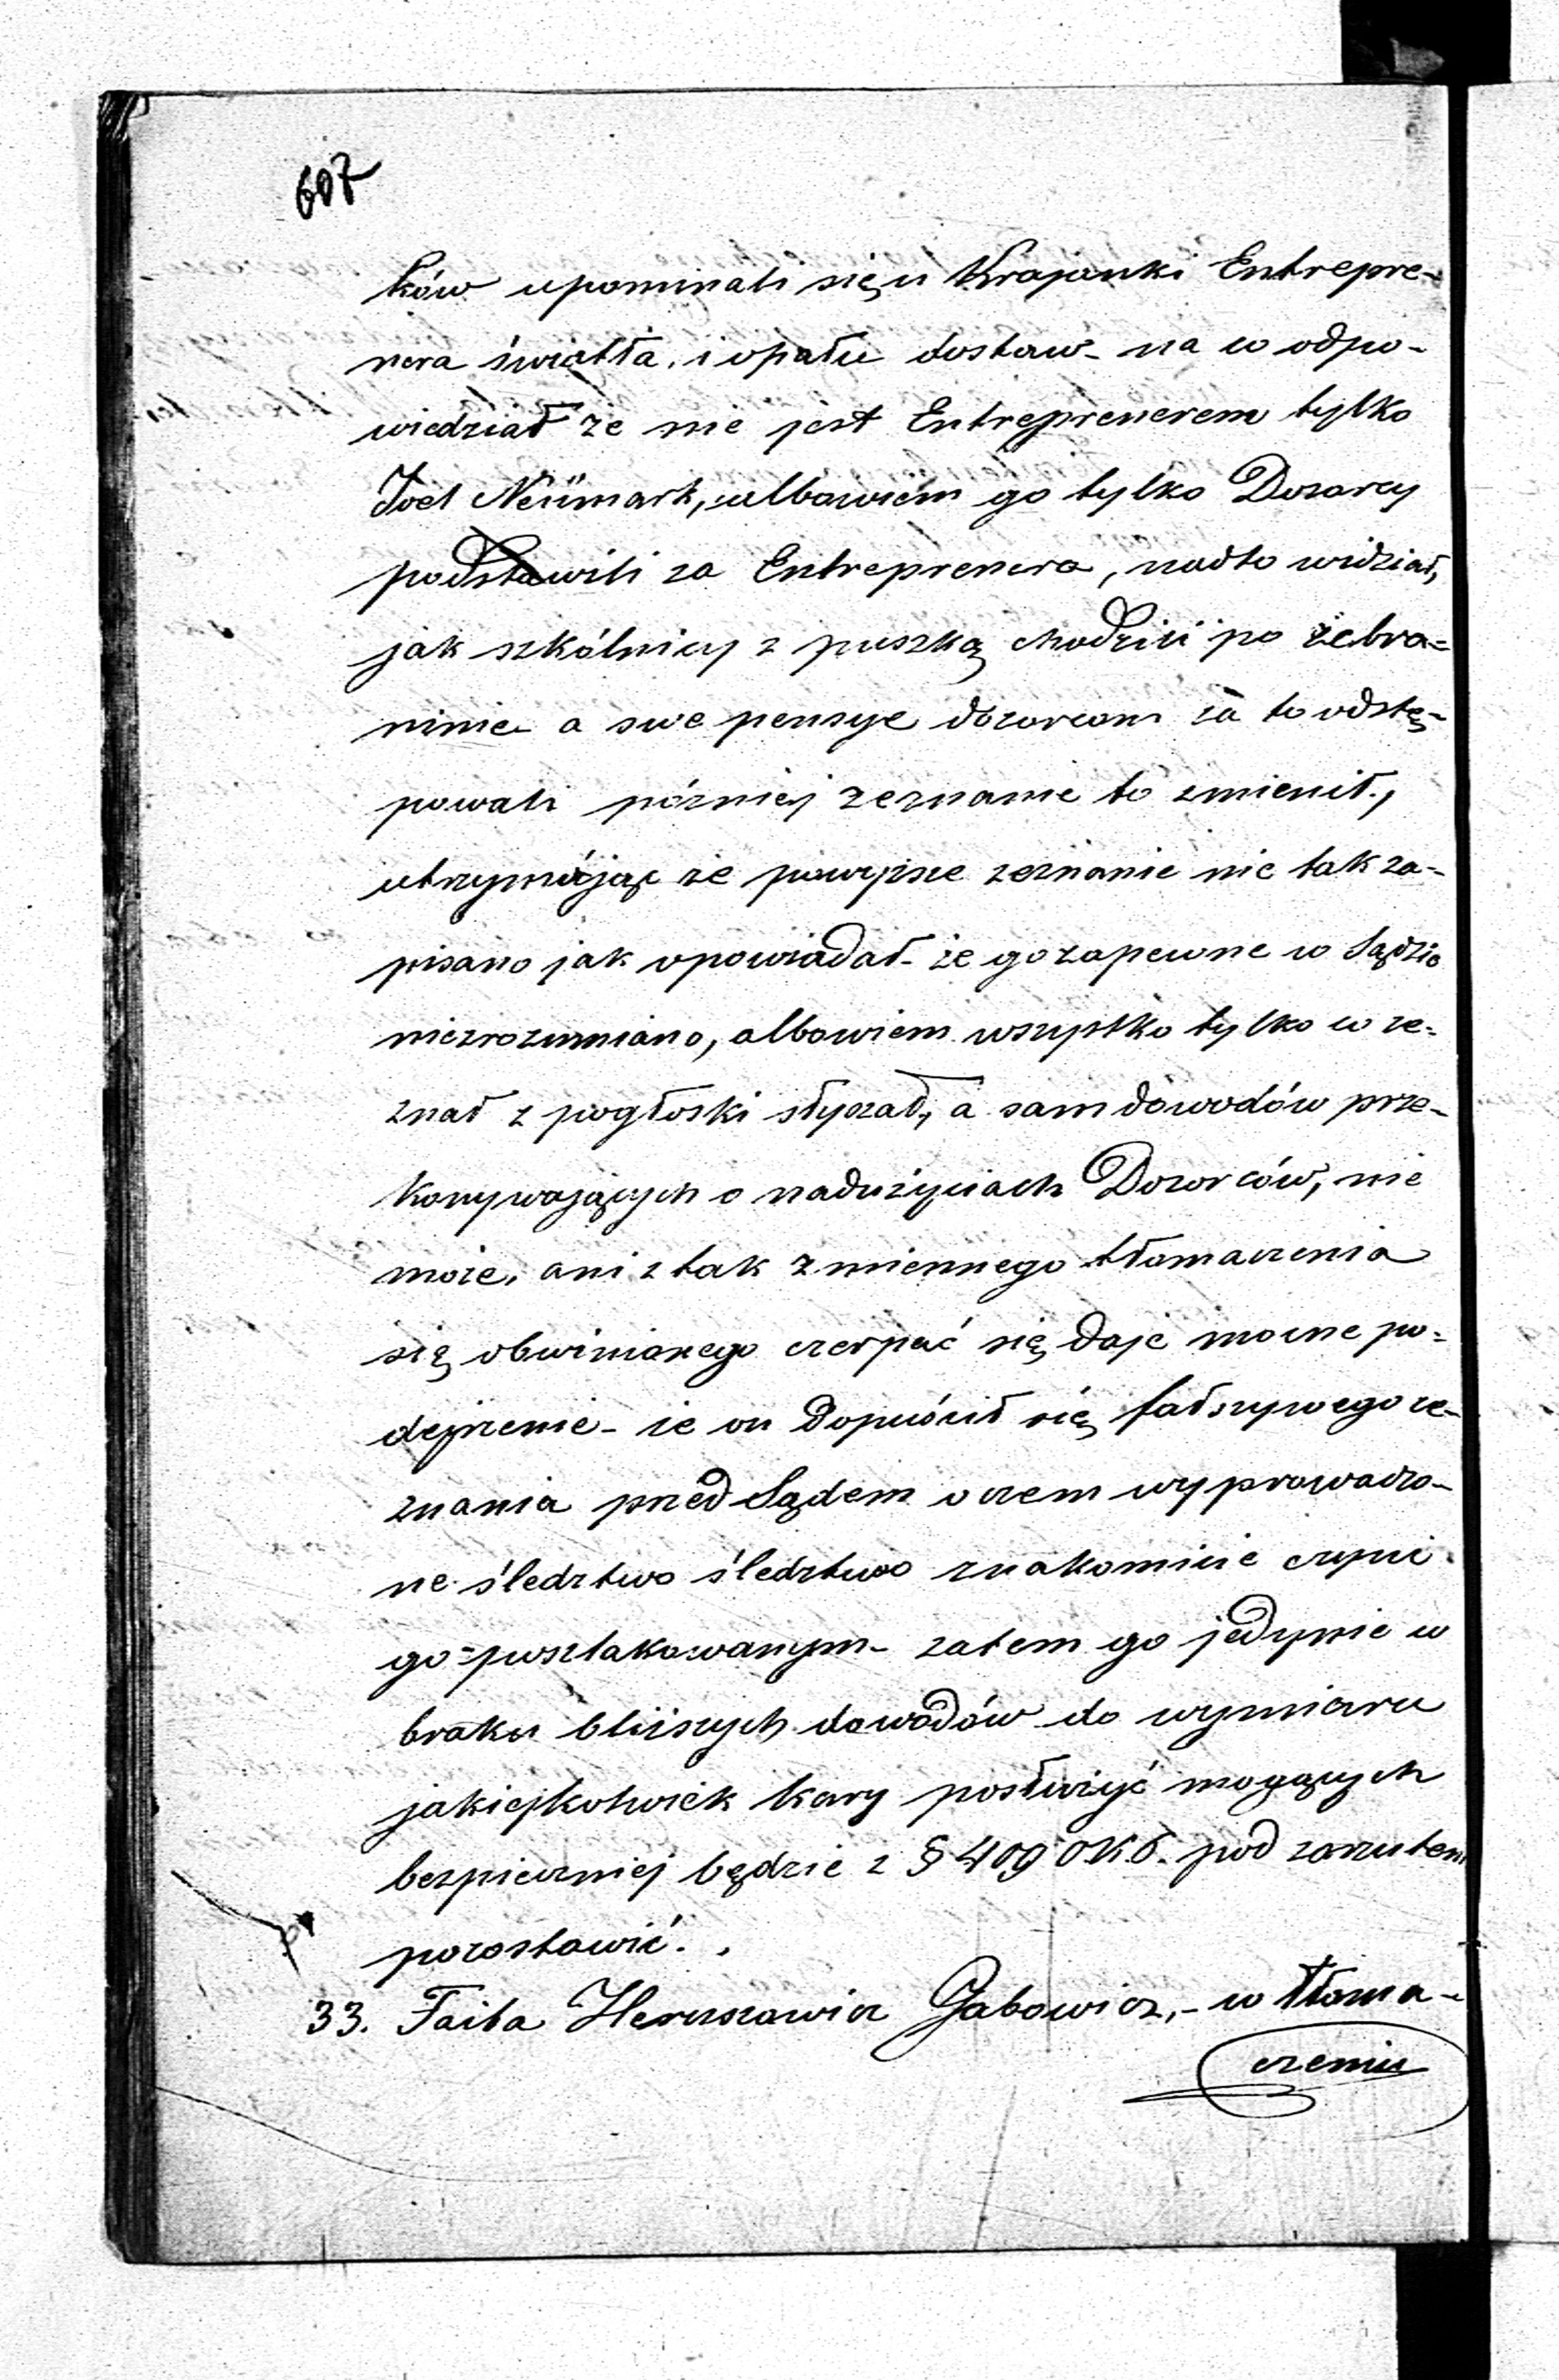 607
ków upominali się u Krajanki Entrepre-
nera światła, i opału dostaw- na co odpo-
wiedział że nie jest Entreprenerem tylko
Joel Neümark, albowiem go tylko Dozorcy
podstawili za Entreprenera, nadto widział,
jak szkólnicy z puszką chodzili po żebra=
ninie a swe pensye dozorcom za to odstę-
powali później zeznanie to zmienił,
utrzymując że powyższe zeznanie nie tak za-
pisano jak opowiadał- że go zapewne w Sądzie
niezrozumiano, albowiem wszystko tylko co ze-
znał z pogłoski słyszał, a sam dowodów prze-
konywających o nadużyciach Dozorców, nie
może, ani z tak zmiennego tłomaczenia
się obwinionego czerpać się daje mocne po=
dejrzenie- że on Dopuścił się fałszywego ze-
znania przed Sądem o czem wyprowadzo-
ne śledztwo śledztwo znakomicie czyni
go=poszlakowanym- zatem go jedynie w
braku bliższych dowodów do wymiaru
jakiejkolwiek kary posłużyć mogących
bezpieczniej będzie z § 409 OKS. pod zarzutem
pozostawić.
33. Faiba Herszowicz Gabowicz,- w tłoma-
czeniu